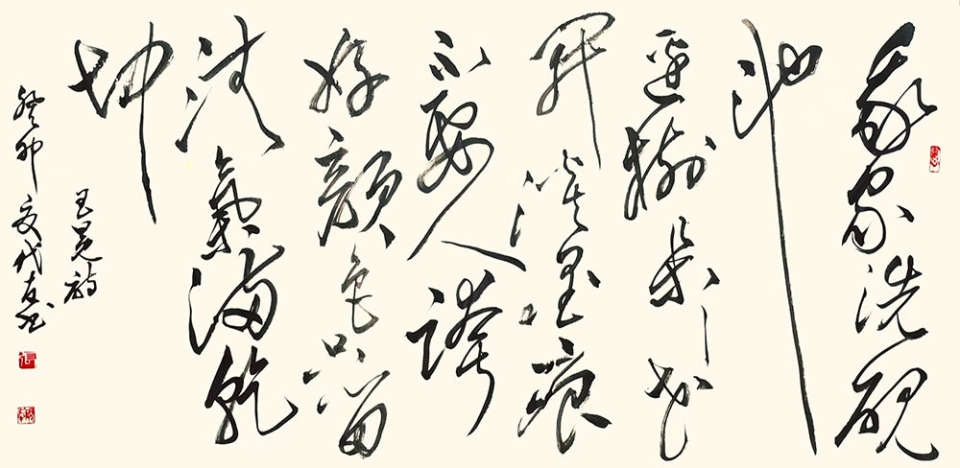 我家洗硯
池
邊樹朵々花
開淡墨痕
不要人誇
好顏色只留
清氣滿乾
坤
王冕詩
癸卯